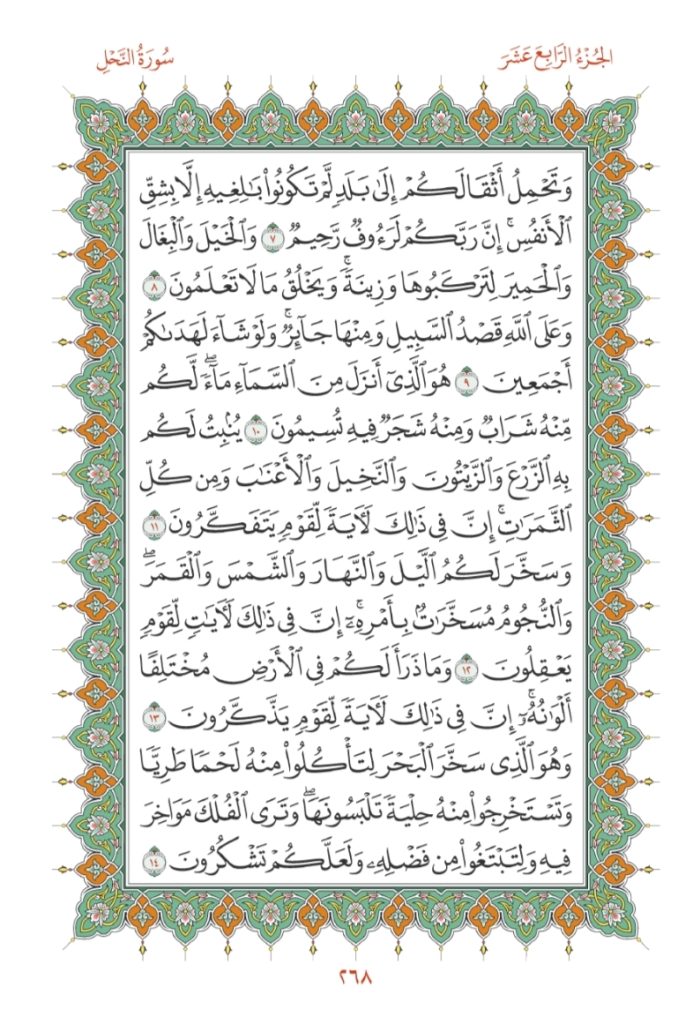 الجُزْءُ الرَّابِعَ عَشَرَ
سُورَةُ النَّحْلِ
وَتَحْمِلُ أَثْقَالَكُمْ إِلَىٰ بَلَدٍ لَّمْ تَكُونُوا۟ بَـٰلِغِيهِ إِلَّا بِشِقِّ
ٱلْأَنفُسِ ۚ إِنَّ رَبَّكُمْ لَرَءُوفٌ رَّحِيمٌ ٧ وَٱلْخَيْلَ وَٱلْبِغَالَ
وَٱلْحَمِيرَ لِتَرْكَبُوهَا وَزِينَةً ۚ وَيَخْلُقُ مَا لَا تَعْلَمُونَ ٨
وَعَلَى ٱللَّهِ قَصْدُ ٱلسَّبِيلِ وَمِنْهَا جَآئِرٌ ۚ وَلَوْ شَآءَ لَهَدَىٰكُمْ
أَجْمَعِينَ ٩ هُوَ ٱلَّذِىٓ أَنزَلَ مِنَ ٱلسَّمَآءِ مَآءً ۖ لَّكُم
مِّنْهُ شَرَابٌ وَمِنْهُ شَجَرٌ فِيهِ تُسِيمُونَ ١٠ يُنۢبِتُ لَكُم
بِهِ ٱلزَّرْعَ وَٱلزَّيْتُونَ وَٱلنَّخِيلَ وَٱلْأَعْنَـٰبَ وَمِن كُلِّ
ٱلثَّمَرَٰتِ ۗ إِنَّ فِى ذَٰلِكَ لَـَٔايَةً لِّقَوْمٍ يَتَفَكَّرُونَ ١١
وَسَخَّرَ لَكُمُ ٱلَّيْلَ وَٱلنَّهَارَ وَٱلشَّمْسَ وَٱلْقَمَرَ ۖ
وَٱلنُّجُومُ مُسَخَّرَٰتٌۢ بِأَمْرِهِۦٓ ۗ إِنَّ فِى ذَٰلِكَ لَـَٔايَـٰتٍ لِّقَوْمٍ
يَعْقِلُونَ ١٢ وَمَا ذَرَأَ لَكُمْ فِى ٱلْأَرْضِ مُخْتَلِفًا
أَلْوَٰنُهُۥٓ ۗ إِنَّ فِى ذَٰلِكَ لَـَٔايَةً لِّقَوْمٍ يَذَّكَّرُونَ ١٣
وَهُوَ ٱلَّذِى سَخَّرَ ٱلْبَحْرَ لِتَأْكُلُوا۟ مِنْهُ لَحْمًا طَرِيًّا
وَتَسْتَخْرِجُوا۟ مِنْهُ حِلْيَةً تَلْبَسُونَهَا ۖ وَتَرَى ٱلْفُلْكَ مَوَاخِرَ
فِيهِ وَلِتَبْتَغُوا۟ مِن فَضْلِهِۦ وَلَعَلَّكُمْ تَشْكُرُونَ ١٤
٢٦٨